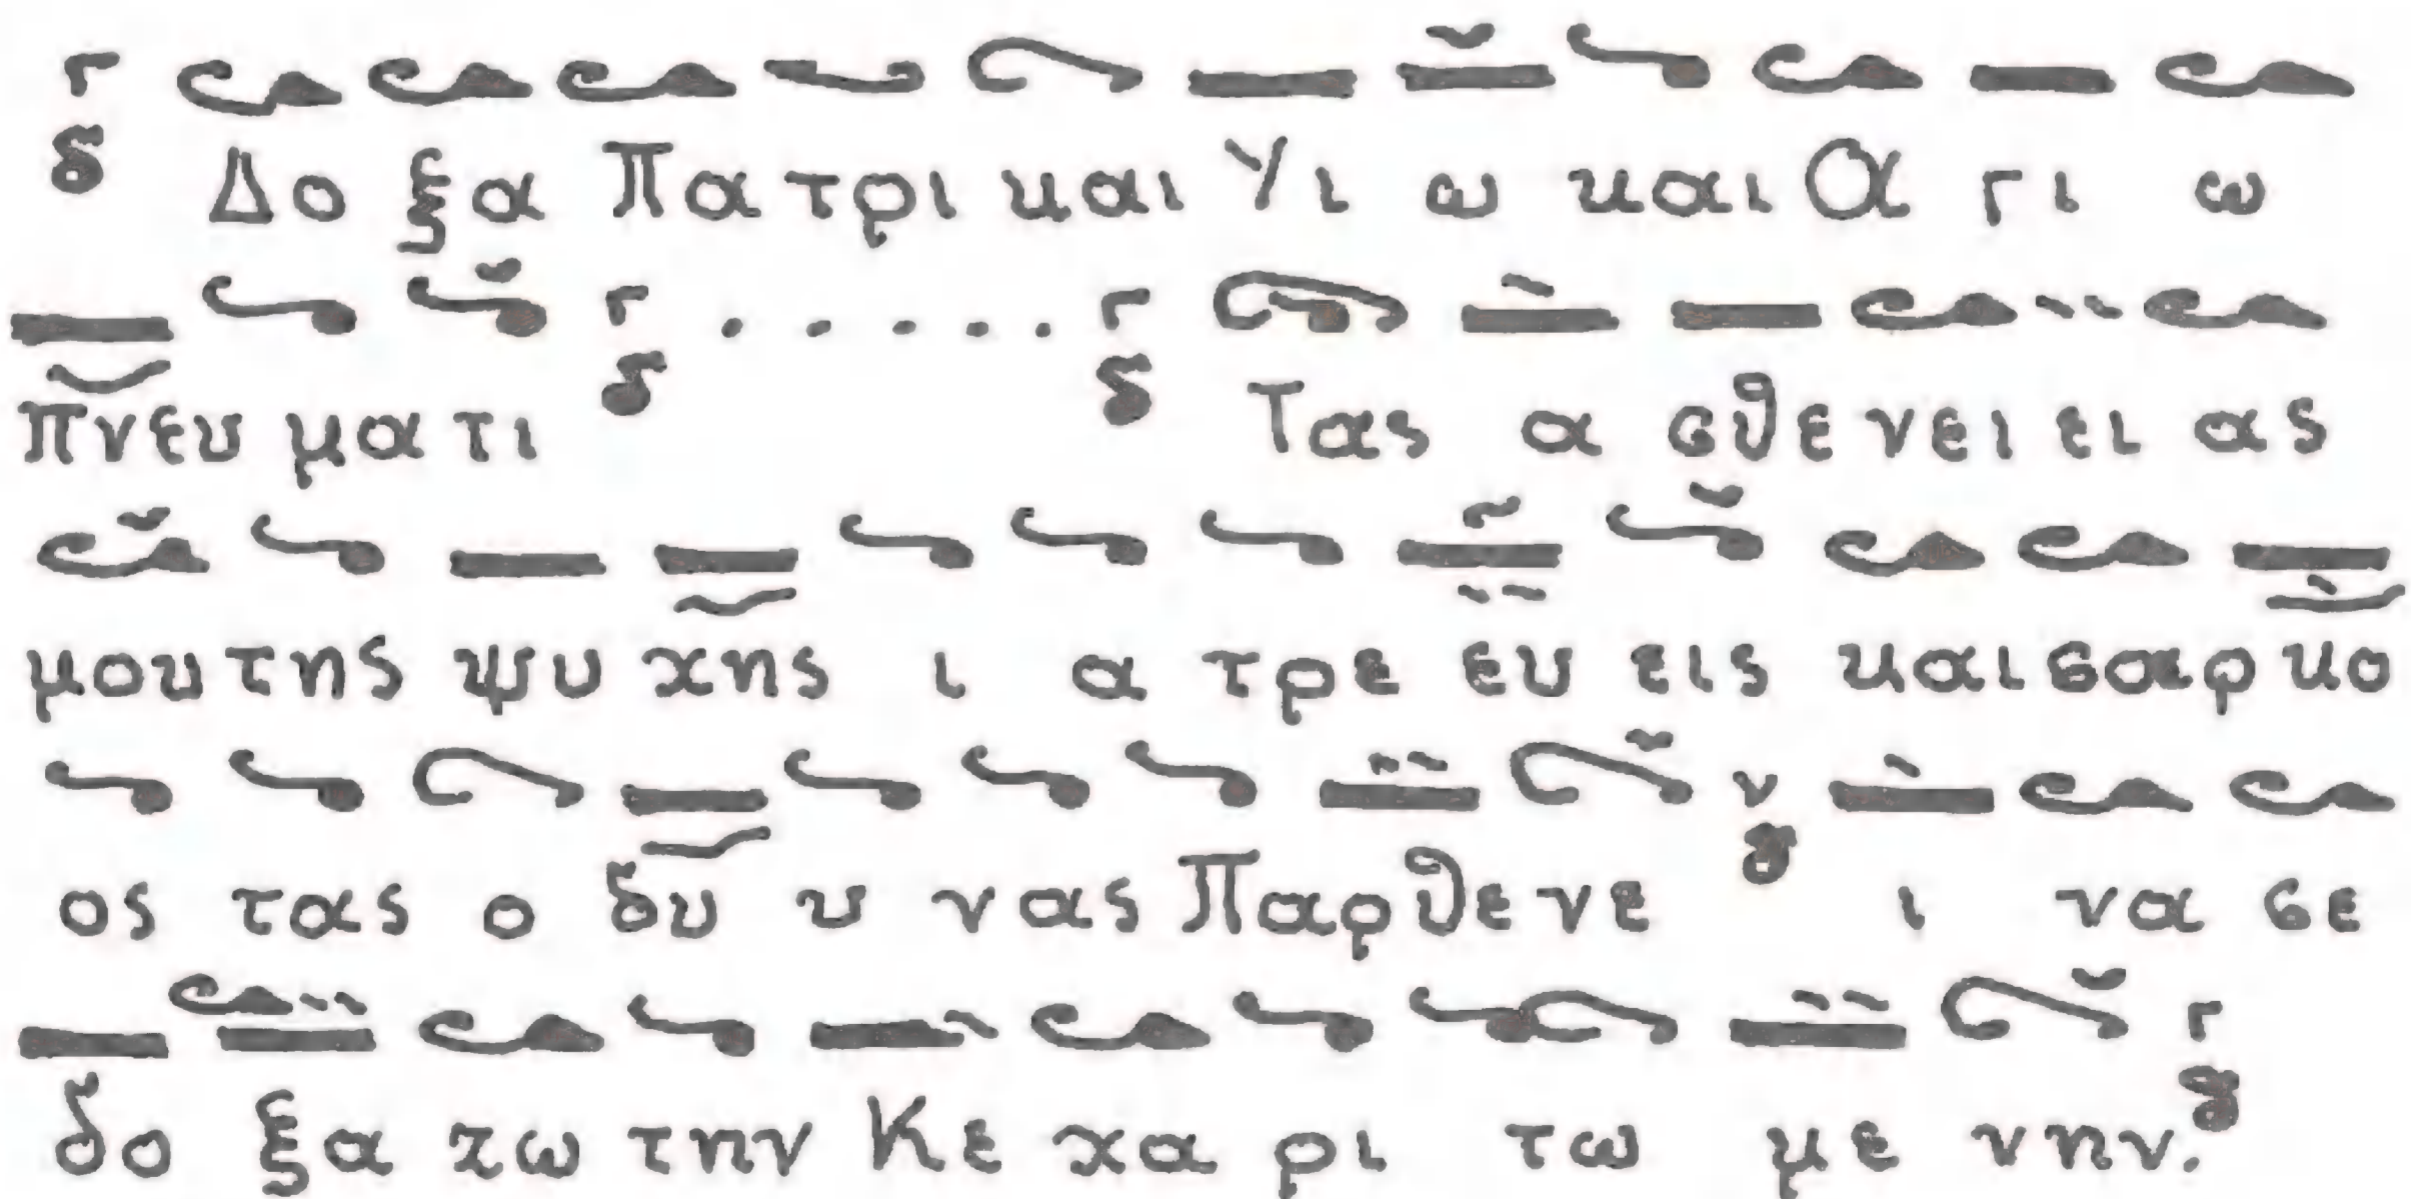 Γ
δ Δο ξα Πα τρι και Υι ω και Α γι ω
Γ Γ
πνευ μα τι δ . . . . . δ Τας α σθε νει ει ας
μου της ψυ χης ι α τρε ευ εις και σαρ κο
ν
ος τας ο δυ υ νας Παρ θε νε ι να σε
Γ
δο ξα ζω την Κε χα ρι τω με νην.